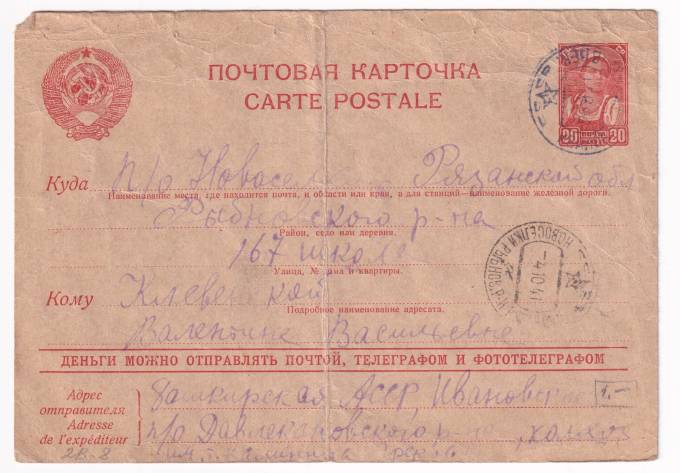 ПОЧТОВАЯ КАРТОЧКА
CARTE POSTALE
20 20
Куда п/о Новосел Рязанской обл
Наименование места, где находится почта, и области или края, а для станций—наименование железной дороги.
Рыбновского р-на
Район, село или деревня.
167 школе
Улица, № дома и квартиры.
НОВОСЕЛКИ РЫБНОВ.
-4.10.41
Кому
Подробное наименование адресата.
Валентине Васильевне
ДЕНЬГИ МОЖНО ОТПРАВЛЯТЬ ПОЧТОЙ, ТЕЛЕГРАФОМ И ФОТОТЕЛЕГРАФОМ
Адрес отправителя
Adresse de l'expéditeur
Башкирская АССР, Ивановские
1.—
п/о Давлекановского р-на,
им.
2В-8